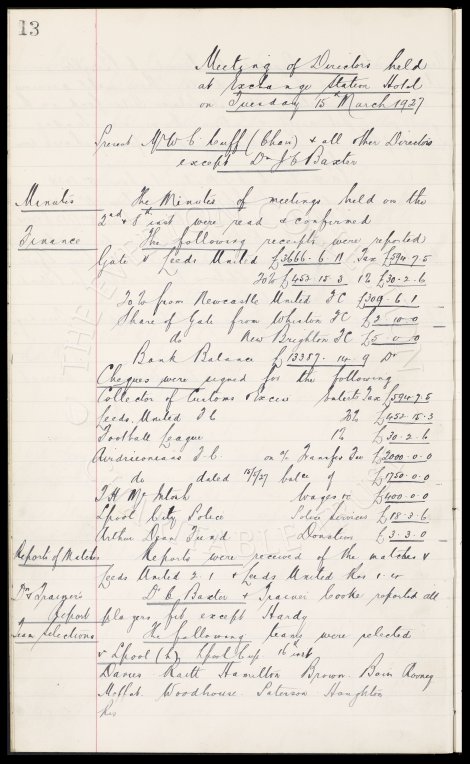 13
Meeting of Directors held
at Exchange Station Hotel
on Tuesday 15th March 1927
Present Mr W C Cuff (Chair) & all other Directors
except Dr J C Baxter
Minutes The Minutes of meetings held on the
2nd & 8th inst were read & confirmed
Finance The following receipts were reported
Gate v Leeds United £3666.6.11 Tax £594.7.5
20% £452.15.3 1% £30.2.6
20% from Newcastle United FC £309.6.1
Share of Gate from Whiston FC £2.10.0
do New Brighton FC £5.0.10
Bank Balance £13387.14.9 Dr
Cheques were signed for the following
Collector of Customs & Excise Entertts Tax £594.7.5
Leeds United FC 20% £452.15.3
Football League 1% £30.2.6
Airdrieonians FC on a/c Transfer Fee £2000.0.0
do dated 15/5/27 balce of £1750.0.0
T. H. McIntosh Wages &c £400.0.0
Lpool City Police Police Services £18.3.6
Arthur Fund Donation £3.3.0
Reports of Matches Reports were received of the matches v
Leeds United 2.1 & Leeds United Res 1.
Dr & Trainer's Report Dr C. Baxter & Trainer Cooke reported all
players fit except Hardy
Team Selections The following teams were selected
v Lpool (h) Lpool Cup 16 inst
Davies Raitt Hamilton Brown Bain Rooney
Moffat Woodhouse Paterson Houghton
Res